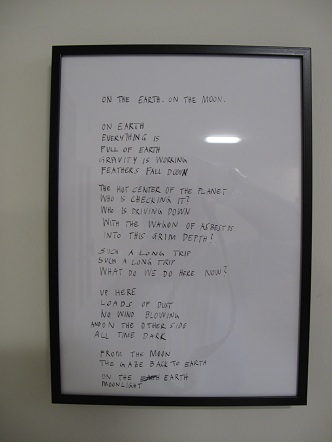 ON THE EARTH. ON THE MOON.
ON EARTH
EVERYTHING IS
FULL OF EARTH
GRAVITY IS WORKING
FEATHERS FALL DOWN
THE HOT CENTER OF THE PLANET
WHO IS CHECKING IT?
WHO IS DRIVING DOWN
WITH THE WAGON OF ASBESTOS
INTO THIS GRIM DEPTH?
SUCH A LONG TRIP
SUCH A LONG TRIP
WHAT DO WE DO HERE NOW?
UP HERE
LOADS OF DUST
NO WIND BLOWING
AND ON THE OTHER SIDE
ALL TIME DARK
FROM THE MOON
THE GAZE BACK TO EARTH
ON THE EARTH
MOONLIGHT